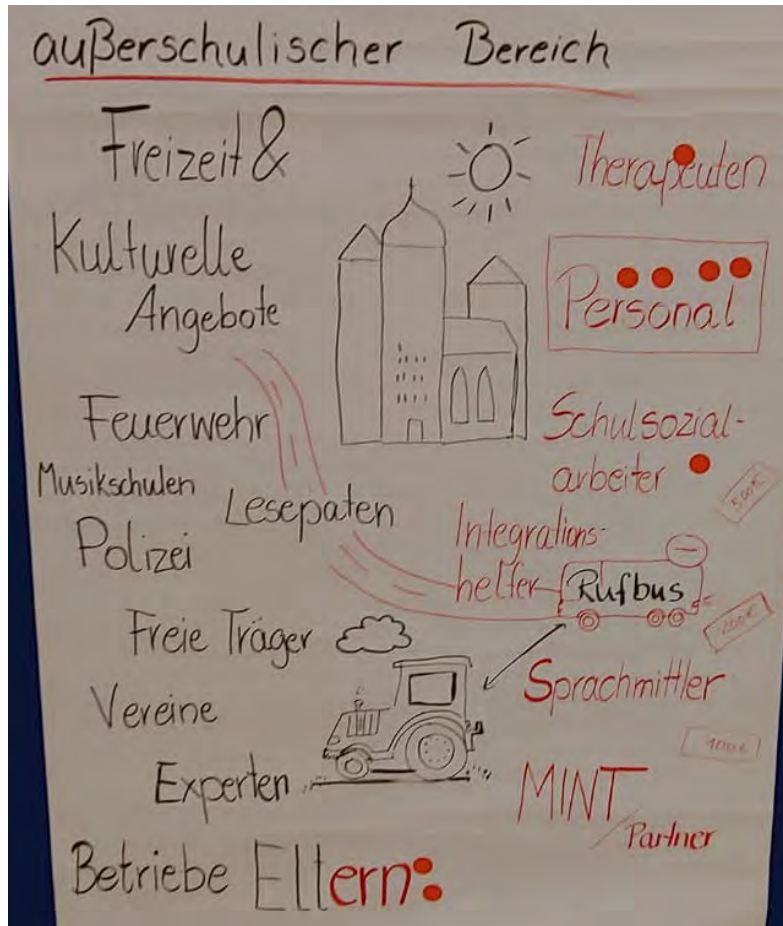 außerschulischer Bereich
Freizeit &
Kulturelle
Angebote
Feuerwehr
Musikschulen
Lesepaten
Polizei
Freie Träger
Vereine
Experten
Betriebe Eltern
Therapeuten
Personal
Schulsozial-
arbeiter
500€
Integrations-
helfer
Rufbus
200€
Sprachmittler
100€
MINT
/Partner